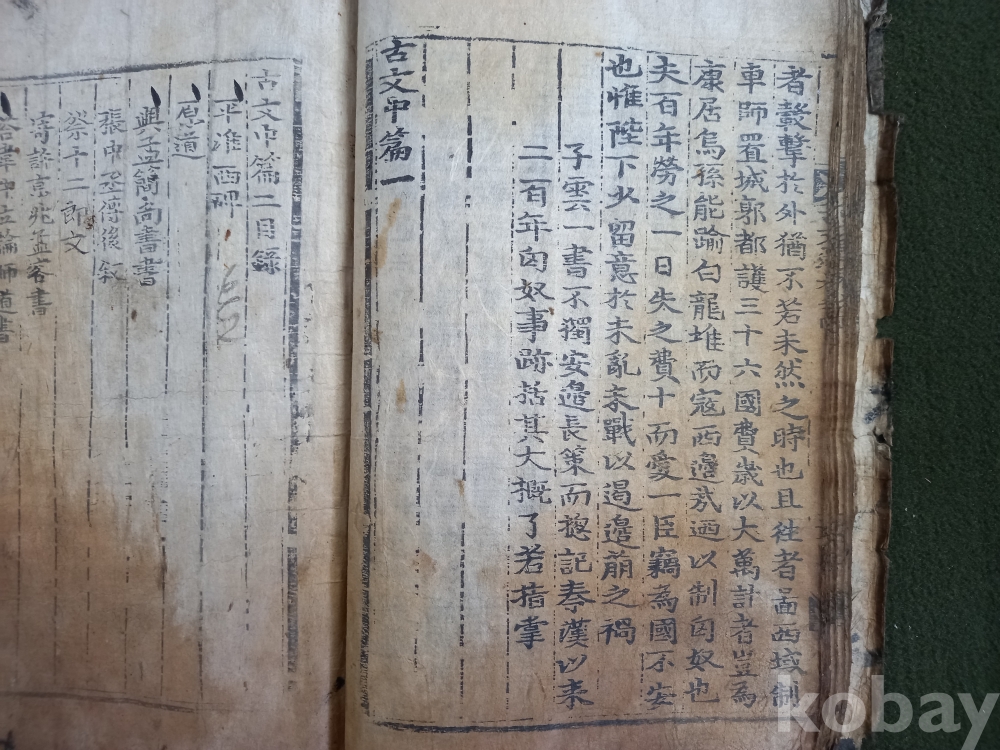 者鼓擊於外猶不若未然之時也且往者啚西域制
車師置城郭都護三十六國費歲以大萬計者豈爲
康居烏孫能踰白龍堆而寇西邊㢤迺以制匈奴也
夫百年勞之一日失之費十而愛一臣竊爲國不安
也惟陛下少留意於未亂未戰以遏邊萠之禍
子雲一書不獨安邊長策而揔記秦漢以来
二百年匈奴事跡括其大槪了若指掌
古文中篇一
古文中篇二目錄
平淮西碑
原道
與孟簡尙書書
張中丞傳後叙
祭十二郞文
寄許京兆孟容書
答韋中立論師道書
kobay